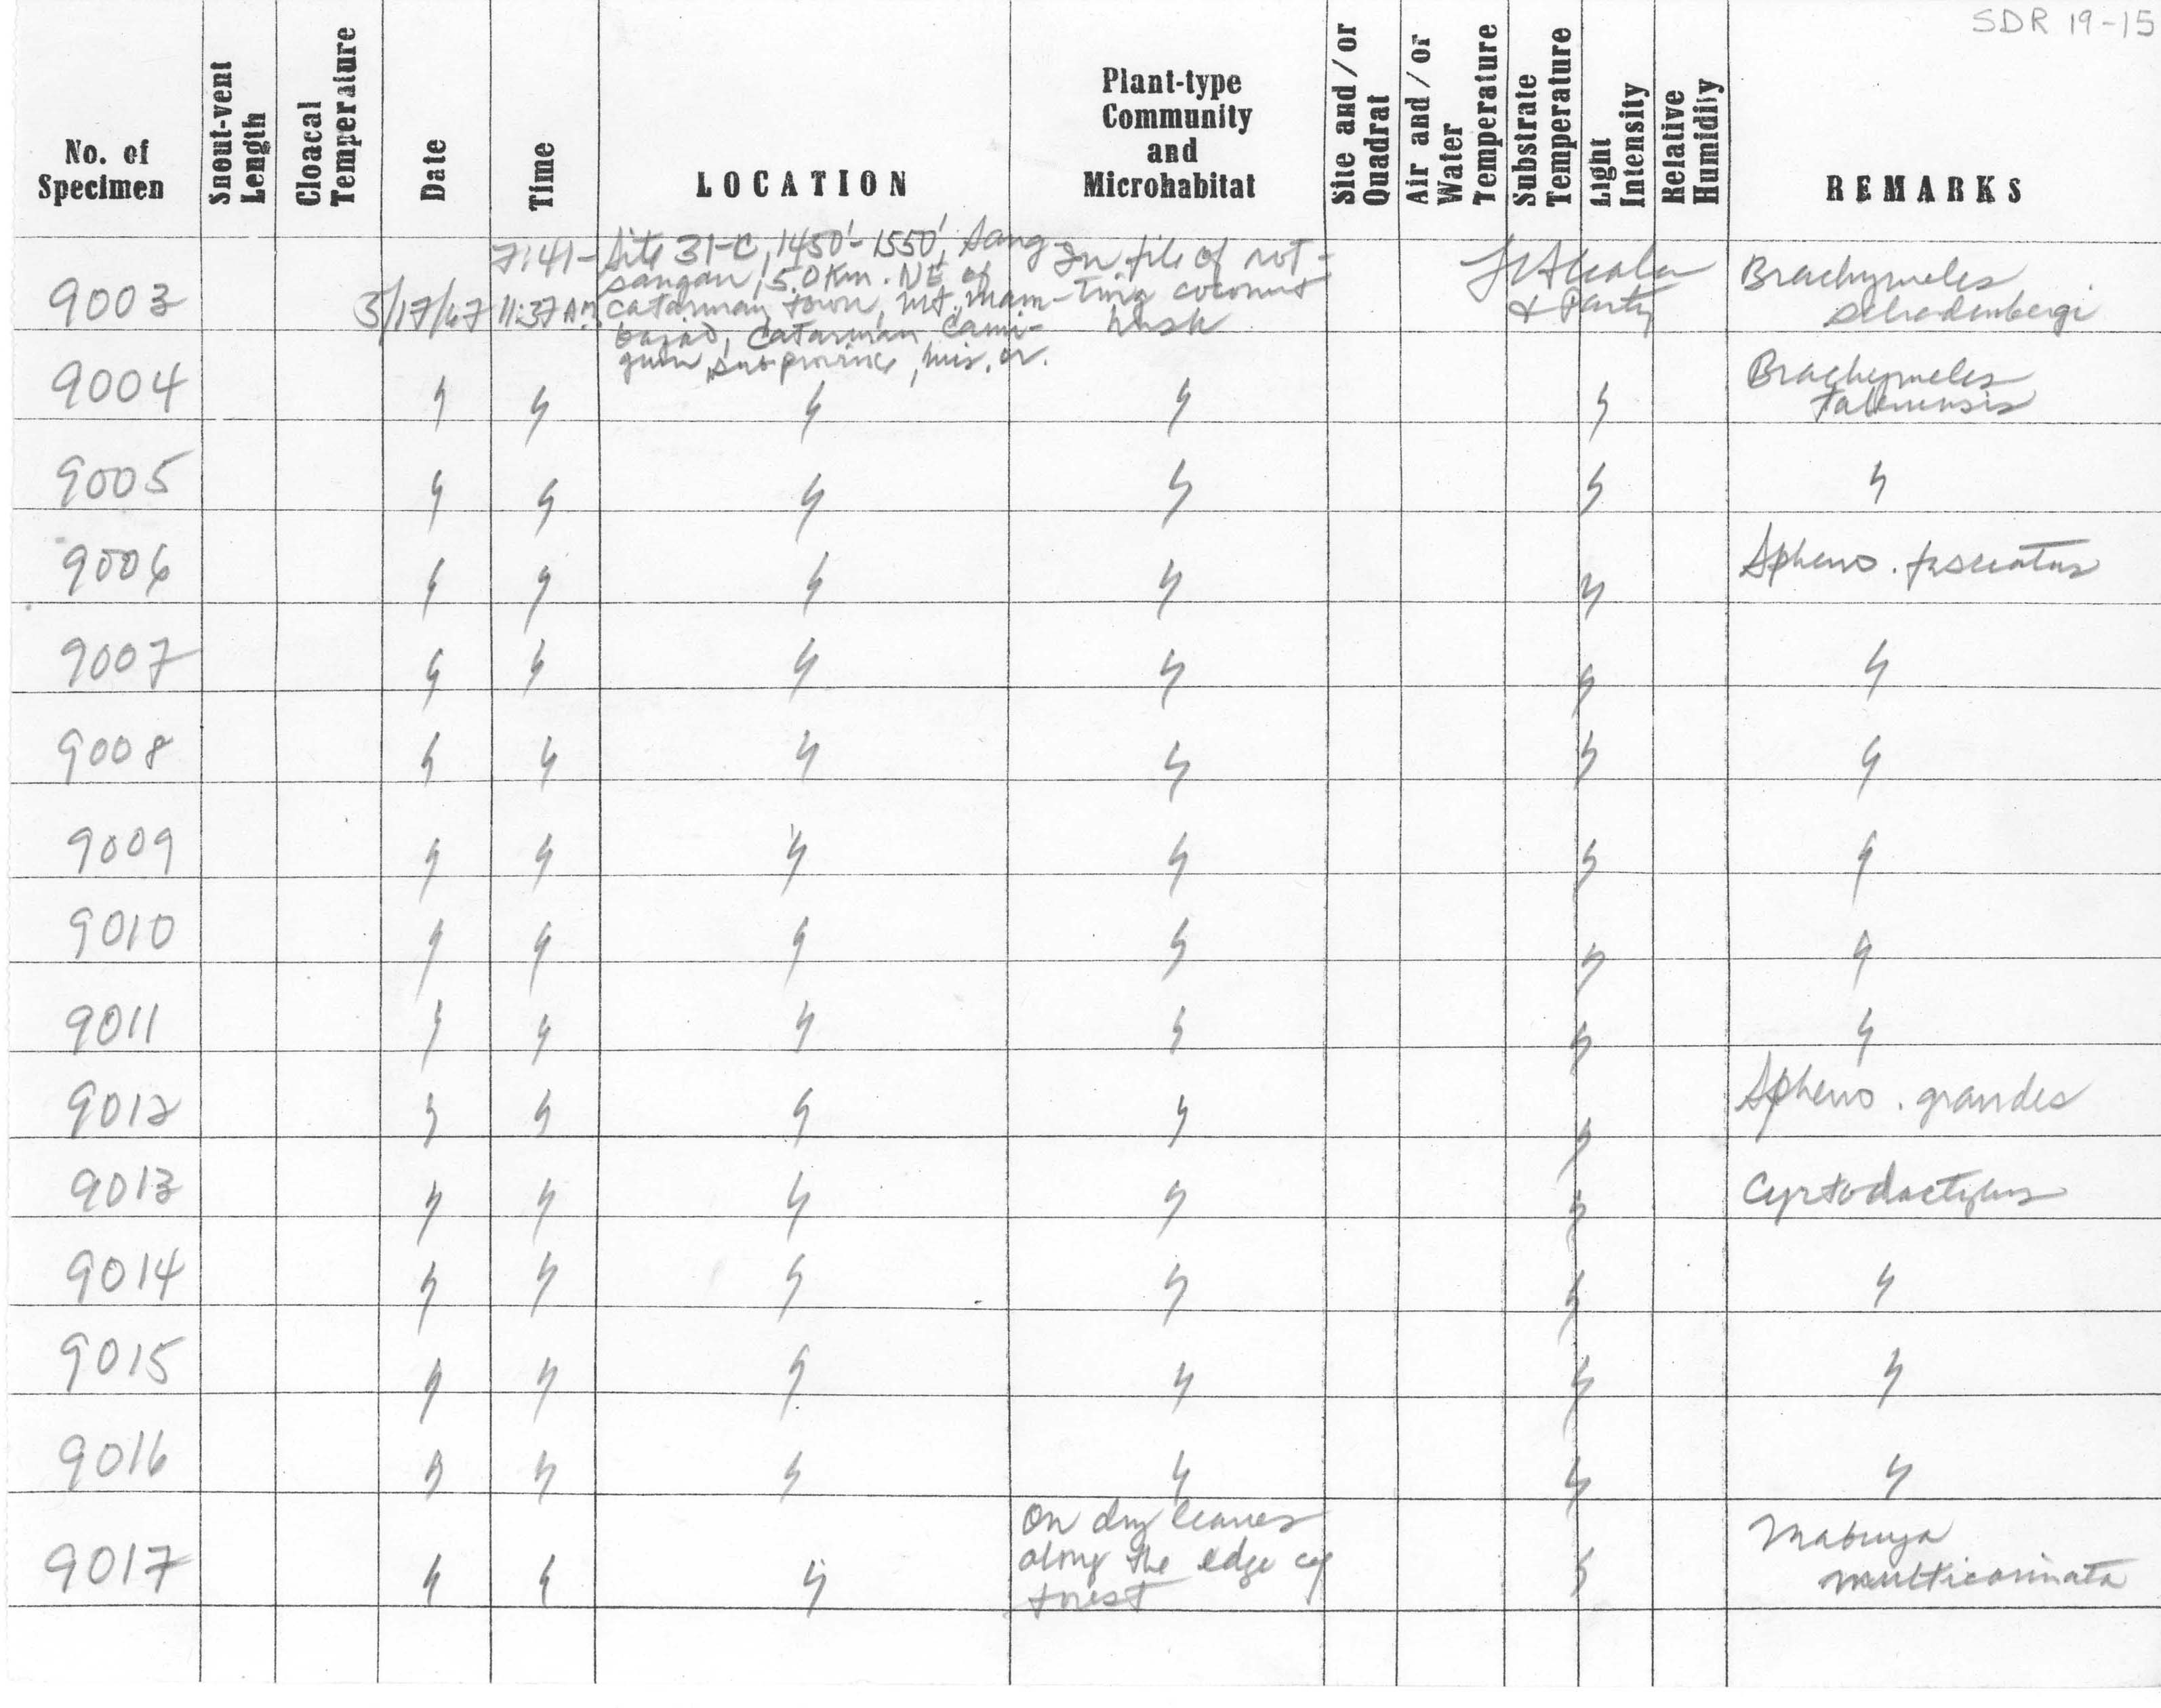 SDR 19-15
No. of Specimen
Snout-vent Length
Cloacal Temperature
Date
Time
LOCATION
Plant-type Community and Microhabitat
Site and/or Quadrat
Air and/or Water Temperature
Substrate Temperature
Light Intensity
Relative Humidity
REMARKS
9003 3/17/67 7:41-11:37 AM
Site 31-C, 1450'-1550', Sang-
sangan, 5.0 Km. NE of
Catarman town, Mt. Mam-
bajao, Catarman, Cami-
guin subprovince, Mis. Or.
In pile of rot-
ting coconut
husk
Alcala
& Party
Brachymeles
schadenbergi
9004 〃 〃 〃 〃 〃 Brachymeles
talinensis
9005 〃 〃 〃 〃 〃 〃
9006 〃 〃 〃 〃 〃 Spheno. fasciatus
9007 〃 〃 〃 〃 〃 〃
9008 〃 〃 〃 〃 〃 〃
9009 〃 〃 〃 〃 〃 〃
9010 〃 〃 〃 〃 〃 〃
9011 〃 〃 〃 〃 〃 〃
9012 〃 〃 〃 〃 〃 Spheno. grandes
9013 〃 〃 〃 〃 〃 Cyrtodactylus
9014 〃 〃 〃 〃 〃 〃
9015 〃 〃 〃 〃 〃 〃
9016 〃 〃 〃 〃 〃 〃
9017 〃 〃 〃
On dry leaves
along the edge of
forest
〃 Mabuya
multicarinata